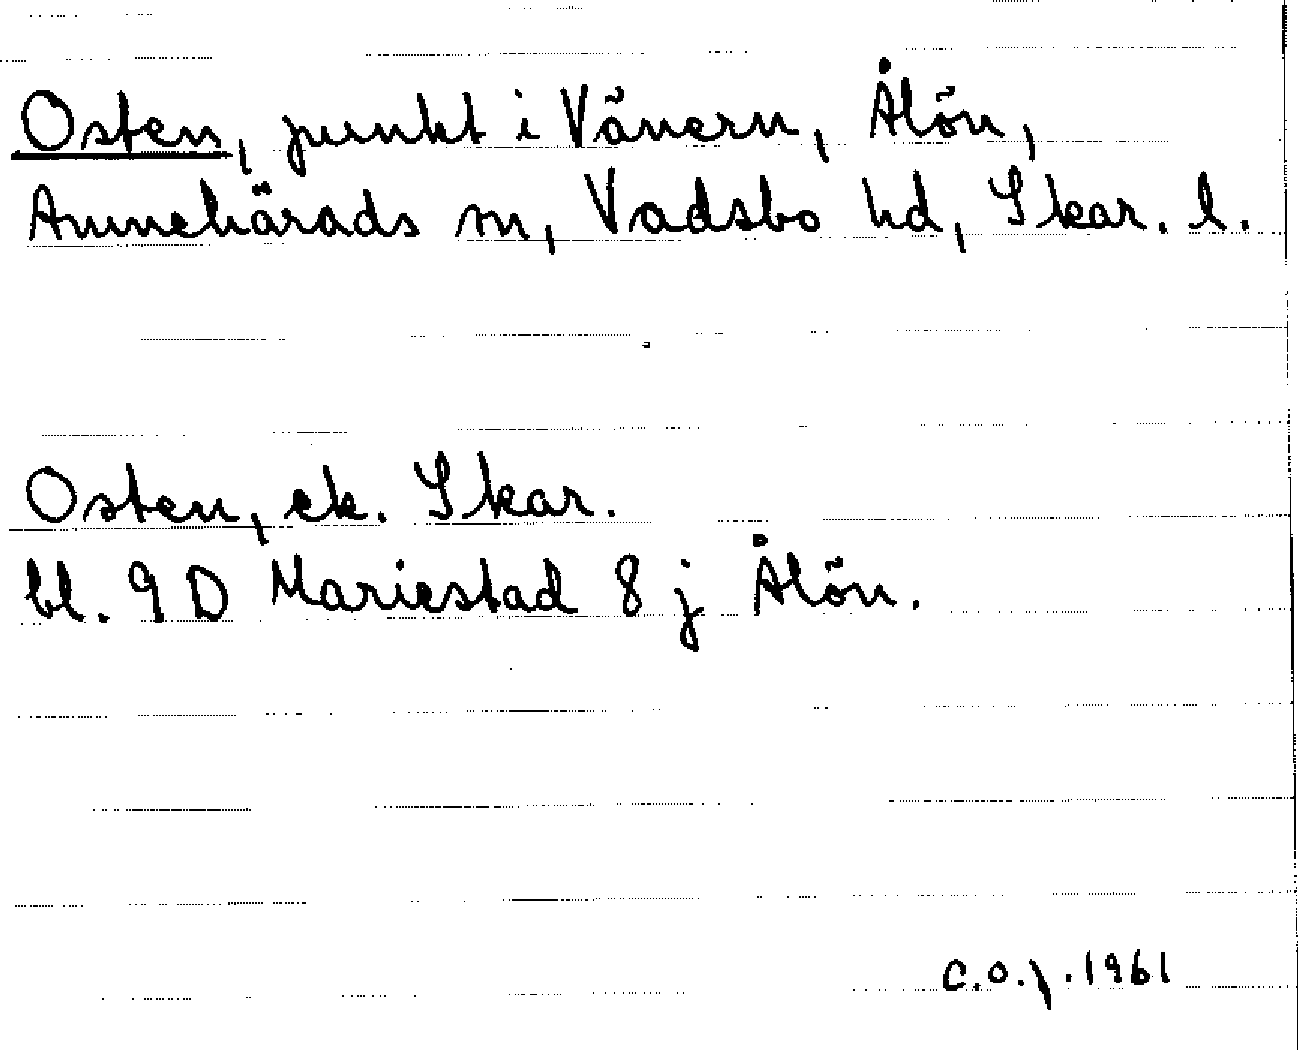 Osten, punkt i Vänern, Ålön,
Amnehärads sn, Vadsbo hd, Skar. l.
Osten, ek. Skar.
bl. 9 D Mariestad 8 j Ålön.
C.O.f. 1961